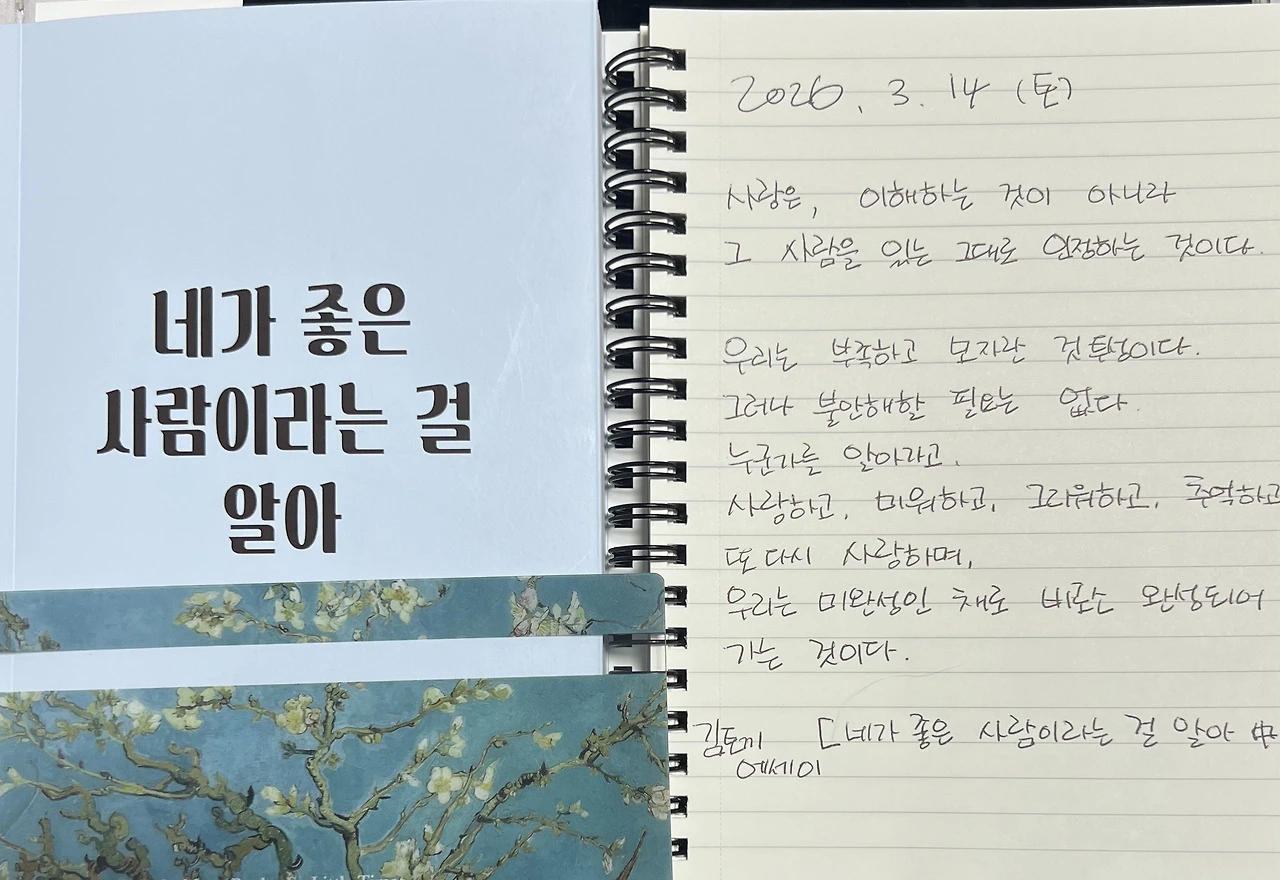 네가 좋은
사람이라는 걸
알아
2026. 3. 14 (토)
사랑은, 이해하는 것이 아니라
그 사람을 있는 그대로 인정하는 것이다.
우리는 부족하고 모자란 것 투성이다.
그러나 불안해할 필요는 없다.
누군가를 알아가고,
사랑하고, 미워하고, 그리워하고, 추억하고
또 다시 사랑하며,
우리는 미완성인 채로 비로소 완성되어
가는 것이다.
김토끼 [네가 좋은 사람이라는 걸 알아 中
에세이